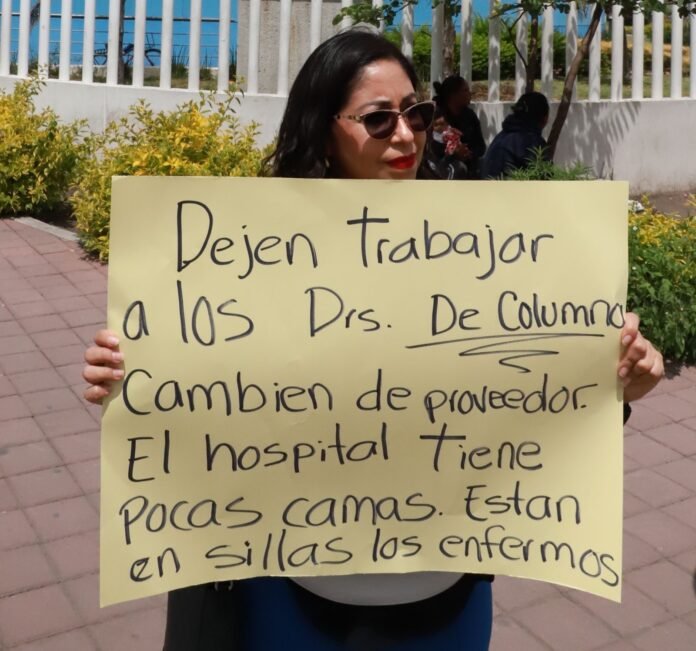 Dejen Trabajar
a los Drs. De Columna
Cambien de proveedor.
El hospital Tiene
pocas camas. Estan
en sillas los enfermos